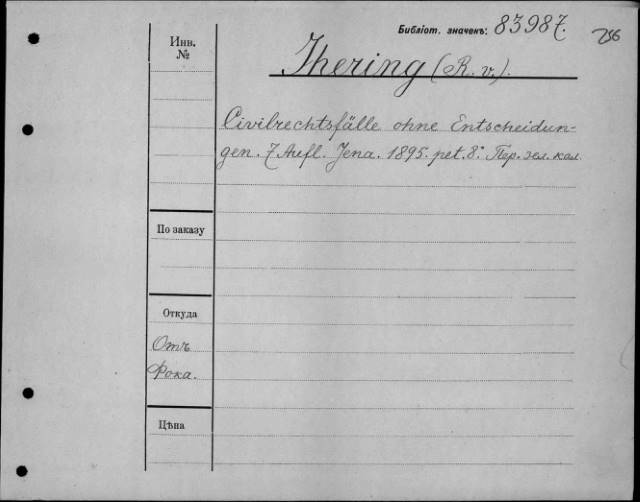 Библіот. значекъ: 83987.
256
Инв.
№
Jhering (R. v.).
Civilrechtsfälle ohne Entscheidun-
gen. 7 Aufl. Jena. 1895. pet. 8°. Пер. зел. кол.
По заказу
Откуда
Отъ
Фока.
Цѣна